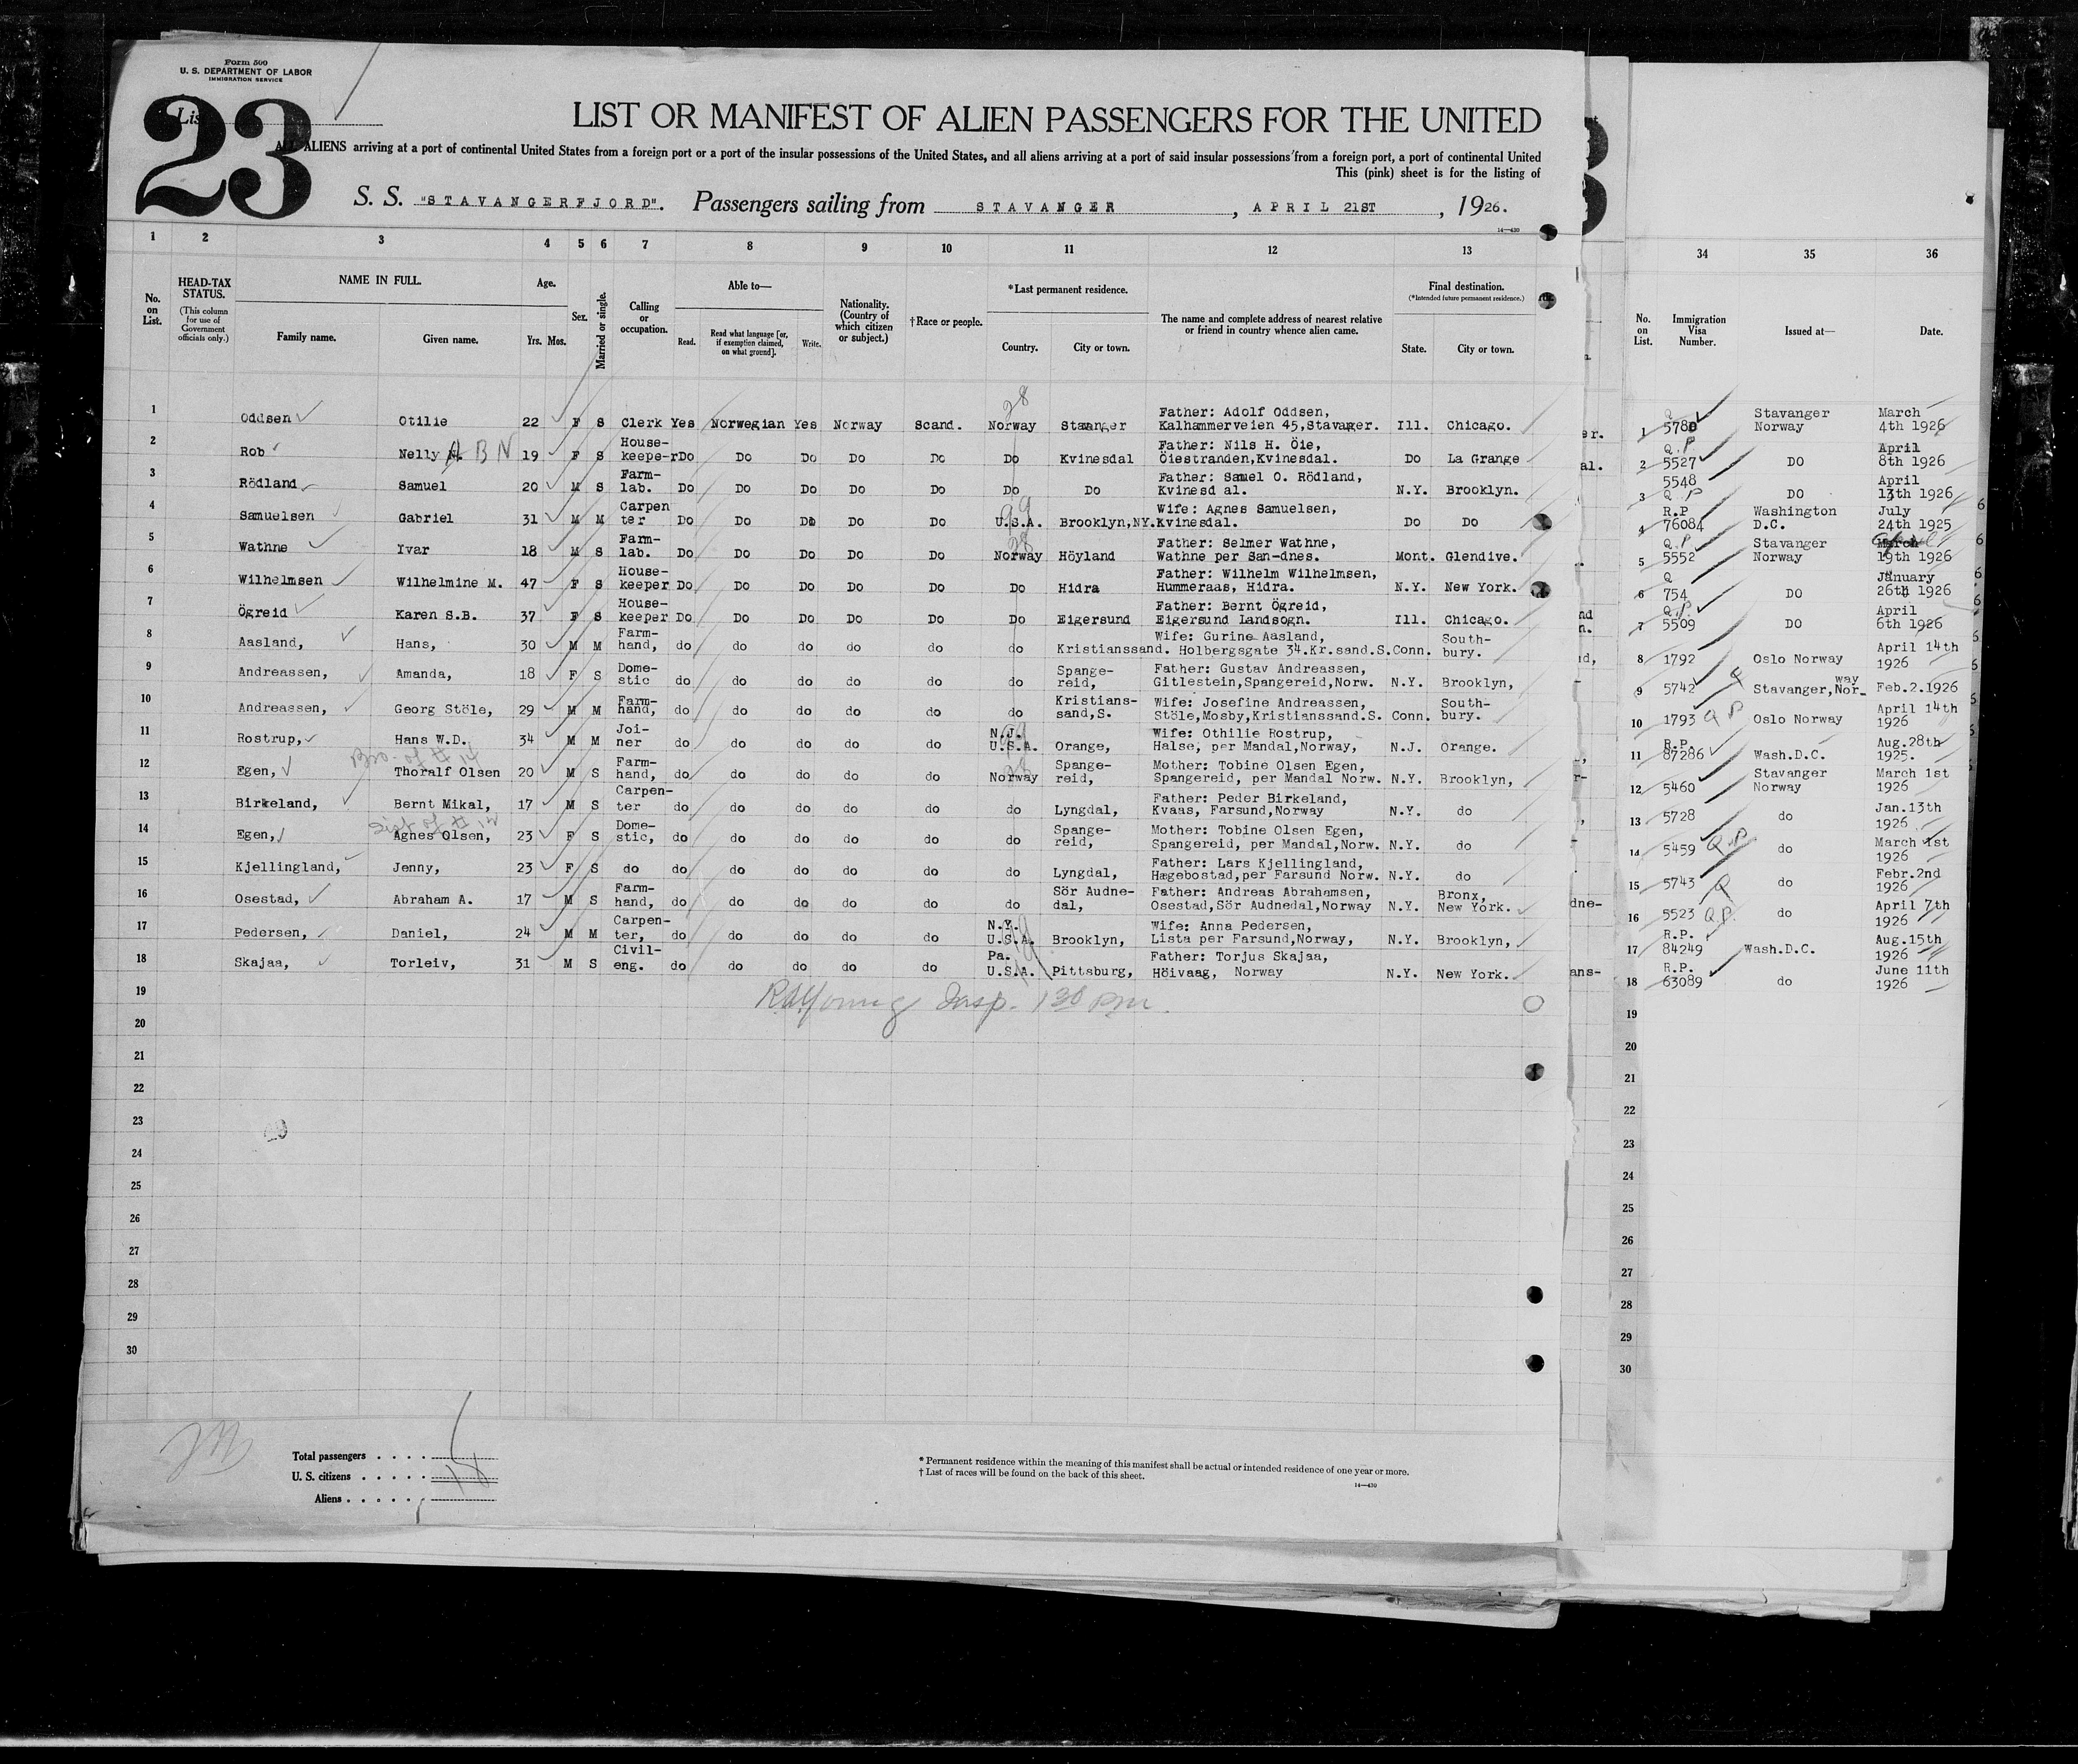 Form 500
U. S. DEPARTMENT OF LABOR
IMMIGRATION SERVICE
23
LIST OR MANIFEST OF ALIEN PASSENGERS FOR THE UNITED
ALL ALIENS arriving at a port of continental United States from a foreign port or a port of the insular possessions of the United States, and all aliens arriving at a port of said insular possessions from a foreign port, a port of continental United
This (pink) sheet is for the listing of
S. S. "STAVANGERFJORD". Passengers sailing from STAVANGER, APRIL 21ST, 1926.
14—430
1 2 3 4 5 6 7 8 9 10 11 12 13 34 35 36
No. on List.
HEAD-TAX STATUS.
(This column for use of Government officials only.)
NAME IN FULL.
Family name. Given name.
Age.
Yrs. Mos.
Sex.
Married or single.
Calling or occupation.
Able to—
Read. Read what language [or, if exemption claimed, on what ground]. Write.
Nationality. (Country of which citizen or subject.)
†Race or people.
*Last permanent residence.
Country. City or town.
The name and complete address of nearest relative or friend in country whence alien came.
Final destination.
(*Intended future permanent residence.)
State. City or town.
No. on List. Immigration Visa Number. Issued at— Date.
1 Oddsen Otilie 22 F S Clerk Yes Norwegian Yes Norway Scand. Norway Stavanger Father: Adolf Oddsen, Kalhammerveien 45,Stavager. Ill. Chicago. 1 5780 Stavanger Norway March 4th 1926
2 Rob Nelly A B N 19 F S House-keepe-r Do Do Do Do Do Do Kvinesdal Father: Nils H. Öie, Öiestranden,Kvinesdal. Do La Grange 2 Q.P 5527 DO April 8th 1926
3 Rödland Samuel 20 M S Farm-lab. Do Do Do Do Do Do Do Father: Samuel O. Rödland, Kvinesd al. N.Y. Brooklyn. 3 5548 Q P DO April 13th 1926
4 Samuelsen Gabriel 31 M M Carpen ter Do Do Do Do Do U.S.A. Brooklyn,NY. Wife: Agnes Samuelsen, Kvinesdal. Do Do 4 R.P 76084 Washington D.C. July 24th 1925
5 Wathne Yvar 18 M S Farm-lab. Do Do Do Do Do Norway Höyland Father: Selmer Wathne, Wathne per San-dnes. Mont. Glendive. 5 Q.P 5552 Stavanger Norway March 19th 1926
6 Wilhelmsen Wilhelmine M. 47 F S House-keeper Do Do Do Do Do Do Hidra Father: Wilhelm Wilhelmsen, Hummeraas, Hidra. N.Y. New York. 6 Q 754 DO January 26th 1926
7 Ögreid Karen S.B. 37 F S House-keeper Do Do Do Do Do Do Eigersund Father: Bernt Ögreid, Eigersund Landsogn. Ill. Chicago. 7 Q.P. 5509 DO April 6th 1926
8 Aasland, Hans, 30 M M Farm-hand, do do do do do do Kristianssand. Wife: Gurine Aasland, Holbergsgate 34.Kr.sand.S. Conn. South-bury. 8 1792 Oslo Norway April 14th 1926
9 Andreassen, Amanda, 18 F S Dome-stic do do do do do do Spange-reid, Father: Gustav Andreassen, Gitlestein,Spangereid,Norw. N.Y. Brooklyn, 9 5742 Stavanger,Nor-way Feb.2.1926
10 Andreassen, Georg Stöle, 29 M M Farm-hand, do do do do do do Kristians-sand,S. Wife: Josefine Andreassen, Stöle,Mosby,Kristianssand.S. Conn. South-bury. 10 1793 Q P Oslo Norway April 14th 1926
11 Rostrup, Hans W.D. 34 M M Joi-ner do do do do do N.J. U.S.A. Orange, Wife: Othilie Rostrup, Halse, per Mandal,Norway, N.J. Orange. 11 R.P. 87286 Wash.D.C. Aug.28th 1925.
Bro. of # 14
12 Egen, Thoralf Olsen 20 M S Farm-hand, do do do do do Norway Spange-reid, Mother: Tobine Olsen Egen, Spangereid, per Mandal Norw. N.Y. Brooklyn, 12 5460 Stavanger Norway March 1st 1926
13 Birkeland, Bernt Mikal, 17 M S Carpen-ter do do do do do do Lyngdal, Father: Peder Birkeland, Kvaas, Farsund,Norway N.Y. do 13 5728 do Jan.13th 1926
Sist of # 12
14 Egen, Agnes Olsen, 23 F S Dome-stic, do do do do do do Spange-reid, Mother: Tobine Olsen Egen, Spangereid, per Mandal,Norw. N.Y. do 14 5459 Q.P. do March 1st 1926
15 Kjellingland, Jenny, 23 F S do do do do do do do Lyngdal, Father: Lars Kjellingland, Hægebostad,per Farsund Norw. N.Y. do 15 5743 Q do Febr.2nd 1926
16 Osestad, Abraham A. 17 M S Farm-hand, do do do do do do Sör Audne-dal, Father: Andreas Abrahamsen, Osestad,Sör Audnedal,Norway N.Y. Bronx, New York. 16 5523 Q.P. do April 7th 1926
17 Pedersen, Daniel, 24 M M Carpen-ter, do do do do do N.Y. U.S.A. Brooklyn, Wife: Anna Pedersen, Lista per Farsund,Norway, N.Y. Brooklyn, 17 R.P. 84249 Wash.D.C. Aug.15th 1926
18 Skajaa, Torleiv, 31 M S Civil-eng. do do do do do Pa. U.S.A. Pittsburg, Father: Torjus Skajaa, Höivaag, Norway N.Y. New York. 18 R.P. 63089 do June 11th 1926
19 Insp. 130 pm. 19
20 20
21 21
22 22
23 23
24 24
25 25
26 26
27 27
28 28
29 29
30 30
Total passengers
U. S. citizens 18
Aliens
* Permanent residence within the meaning of this manifest shall be actual or intended residence of one year or more.
† List of races will be found on the back of this sheet.
14—430